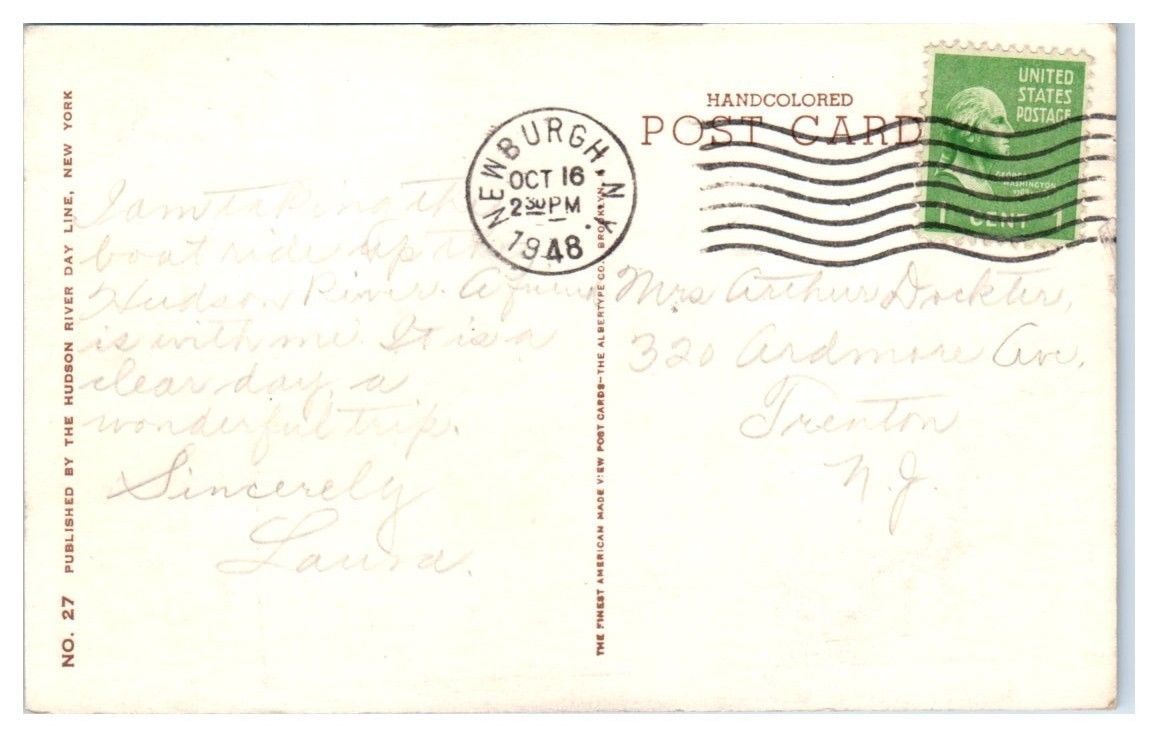 HANDCOLORED
POST CARD
UNITED
STATES
POSTAGE
GEORGE
WASHINGTON
1 CENT 1
NEWBURGH, N.Y.
OCT 16
2 30 PM
1948
I am taking the
boat ride up the
Hudson River. A friend
is with me. It is a
clear day, a
wonderful trip.
Sincerely
Laura.
Mrs Arthur Dockter,
320 Ardmore Ave,
Trenton
N.J.
NO. 27 PUBLISHED BY THE HUDSON RIVER DAY LINE, NEW YORK
THE FINEST AMERICAN MADE VIEW POST CARDS—THE ALBERTYPE CO., BROOKLYN,